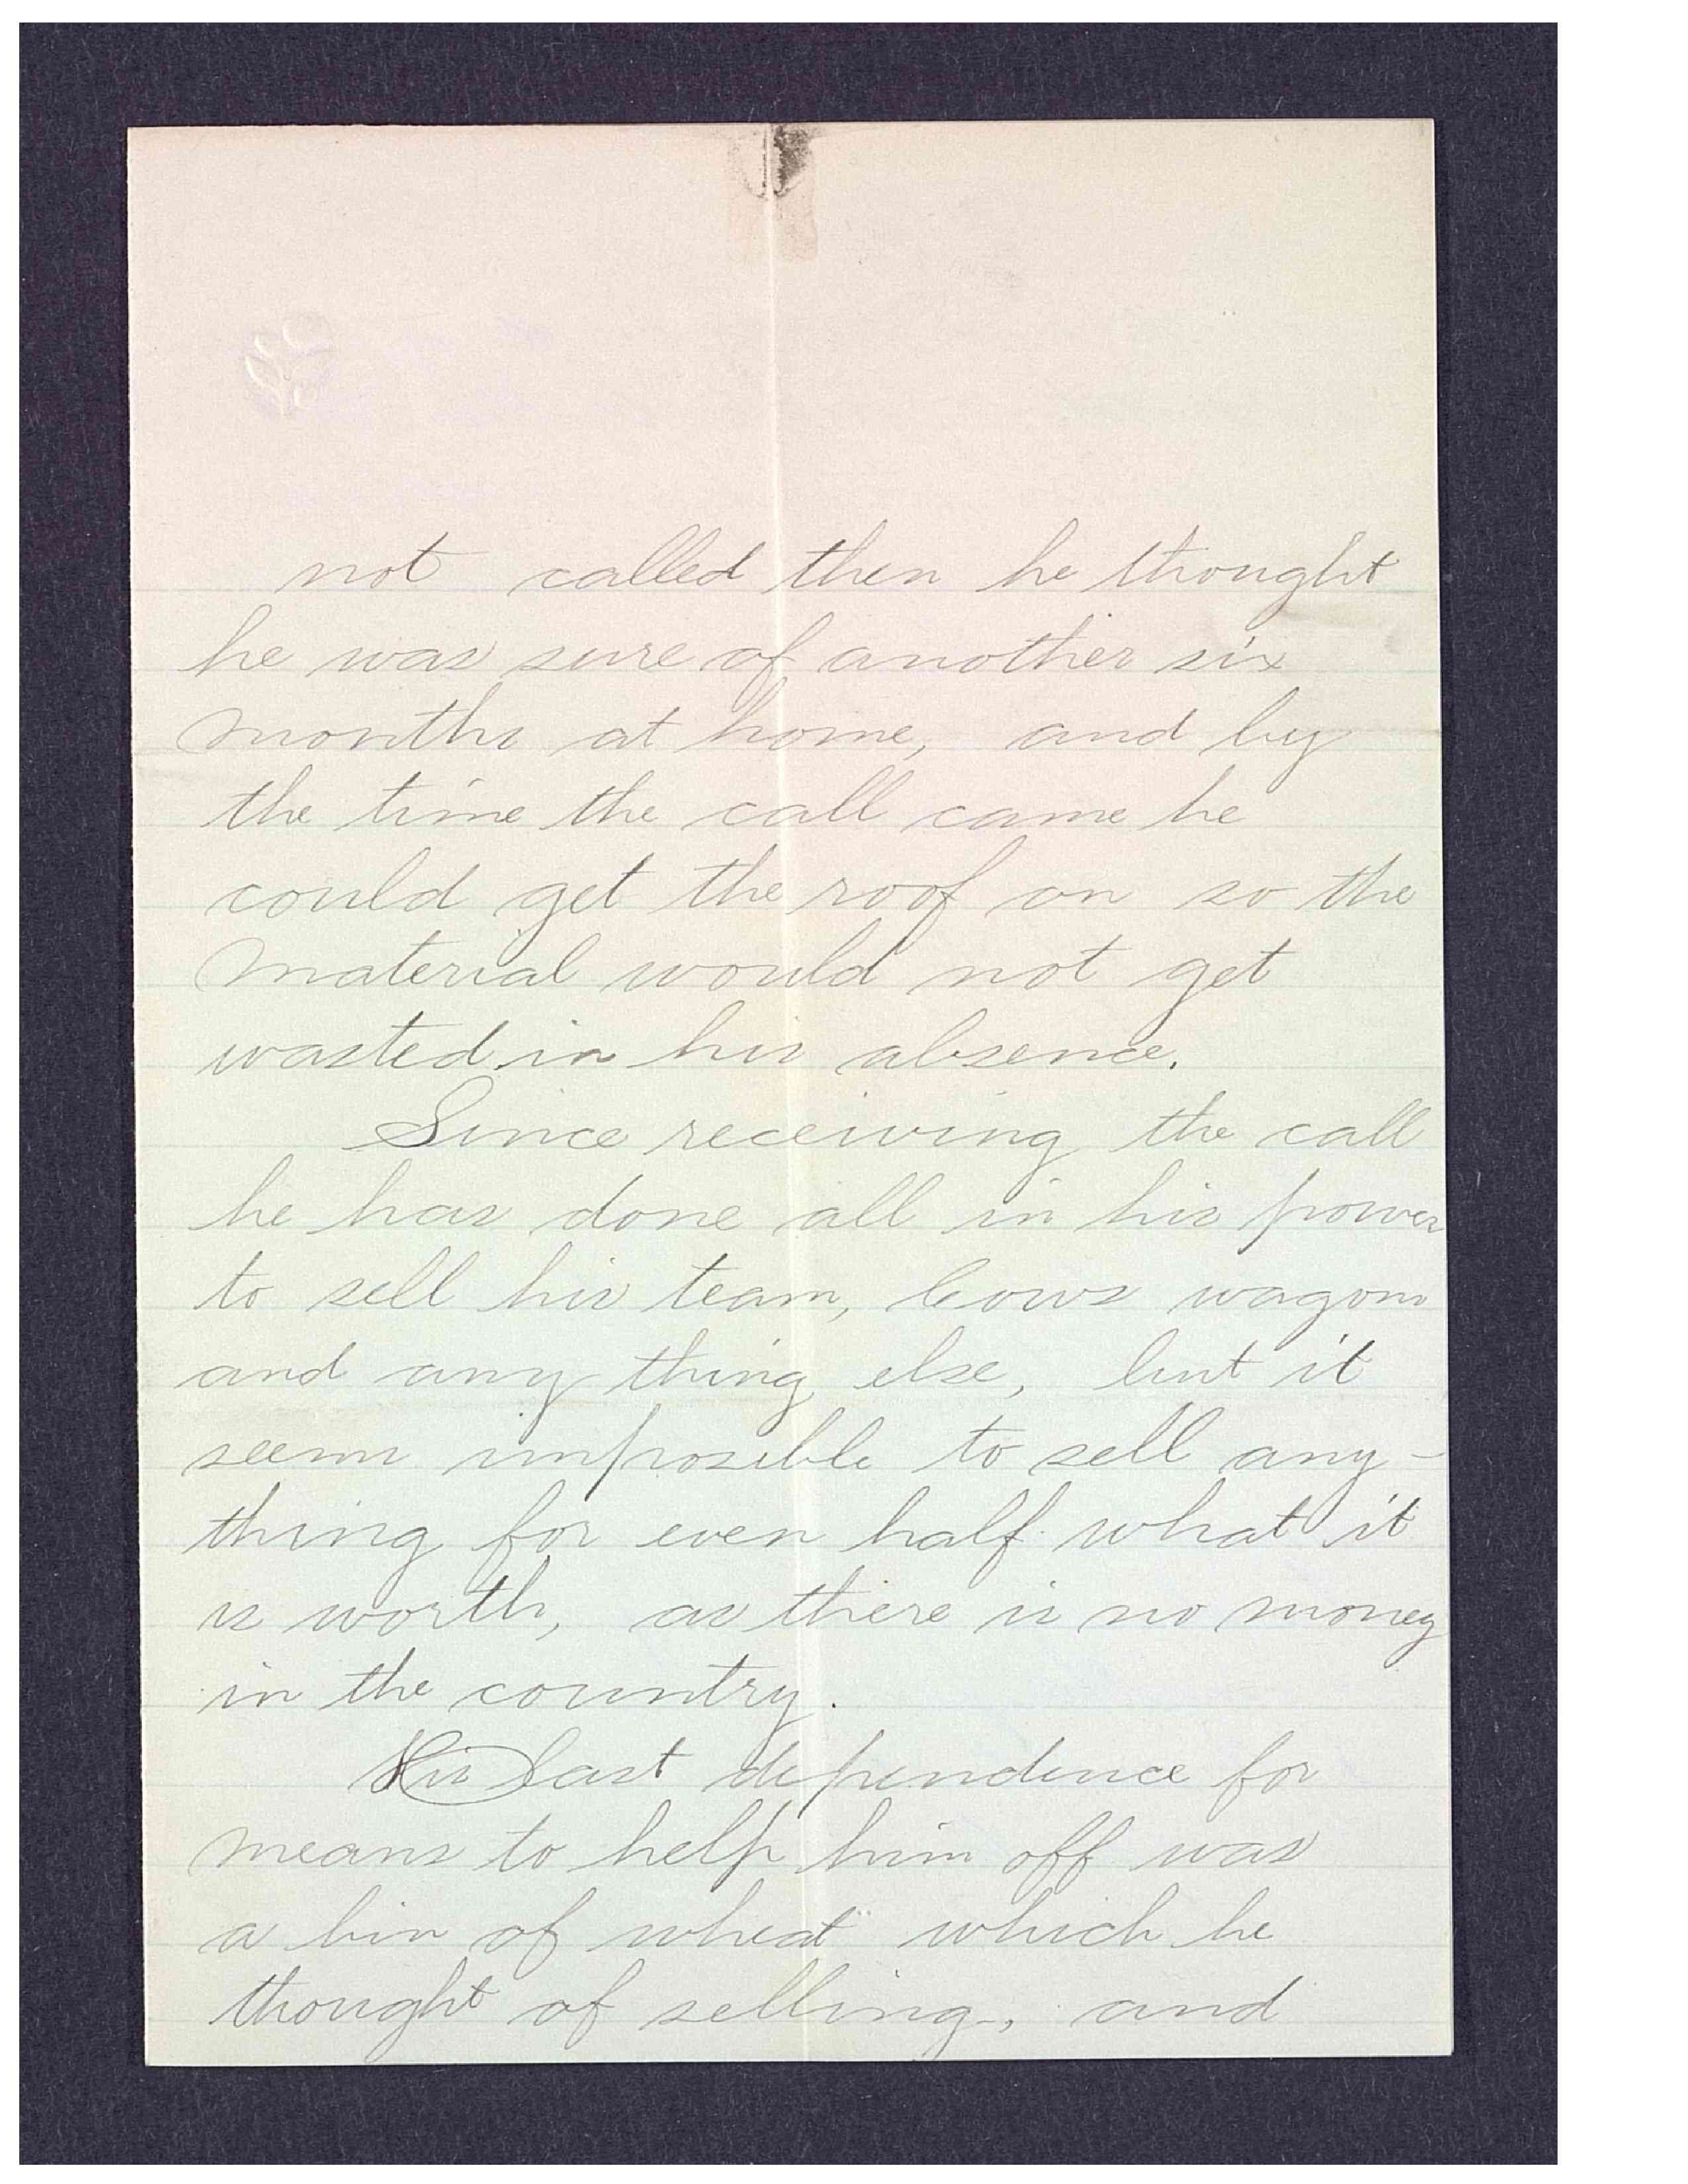 not called then he thought
he was sure of another six
months at home, and by
the time the call came he
could get the roof on so the
material would not get
wasted in his absence.
Since receiving the call
he has done all in his power
to sell his team, Cows wagons
and any thing else, but it
seems imposible to sell any-
thing for even half what it
is worth, as there is no money
in the country.
His last dependence for
means to help him off was
a bin of wheat which he
thought of selling, and